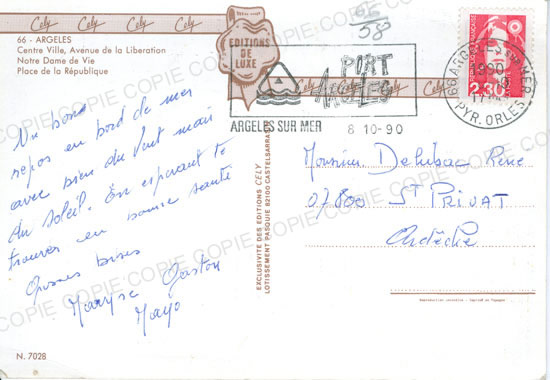 Cely Cely Cely
66 - ARGELES
Centre Ville, Avenue de la Liberation
Notre Dame de Vie
Place de la République
EDITIONS
DE
LUXE
58
PORT
ARGELES
ARGELES SUR MER
8 10-90
66 ARGELES SUR MER
1990
PYR. ORLES
2,30
Un bon
repos en bord de mer
avec bien du Vent mais
du soleil. En esperant te
trouver en bonne santé
Grosses bises
Maryse Gaston
Mayo
Monsieur Delubac René
07800 St PRIVAT
Ardèche
EXCLUSIVITE DES EDITIONS CELY
LOTISSEMENT PASQUIE 82100 CASTELSARRASIN
N. 7028
COPIE COPIE COPIE COPIE